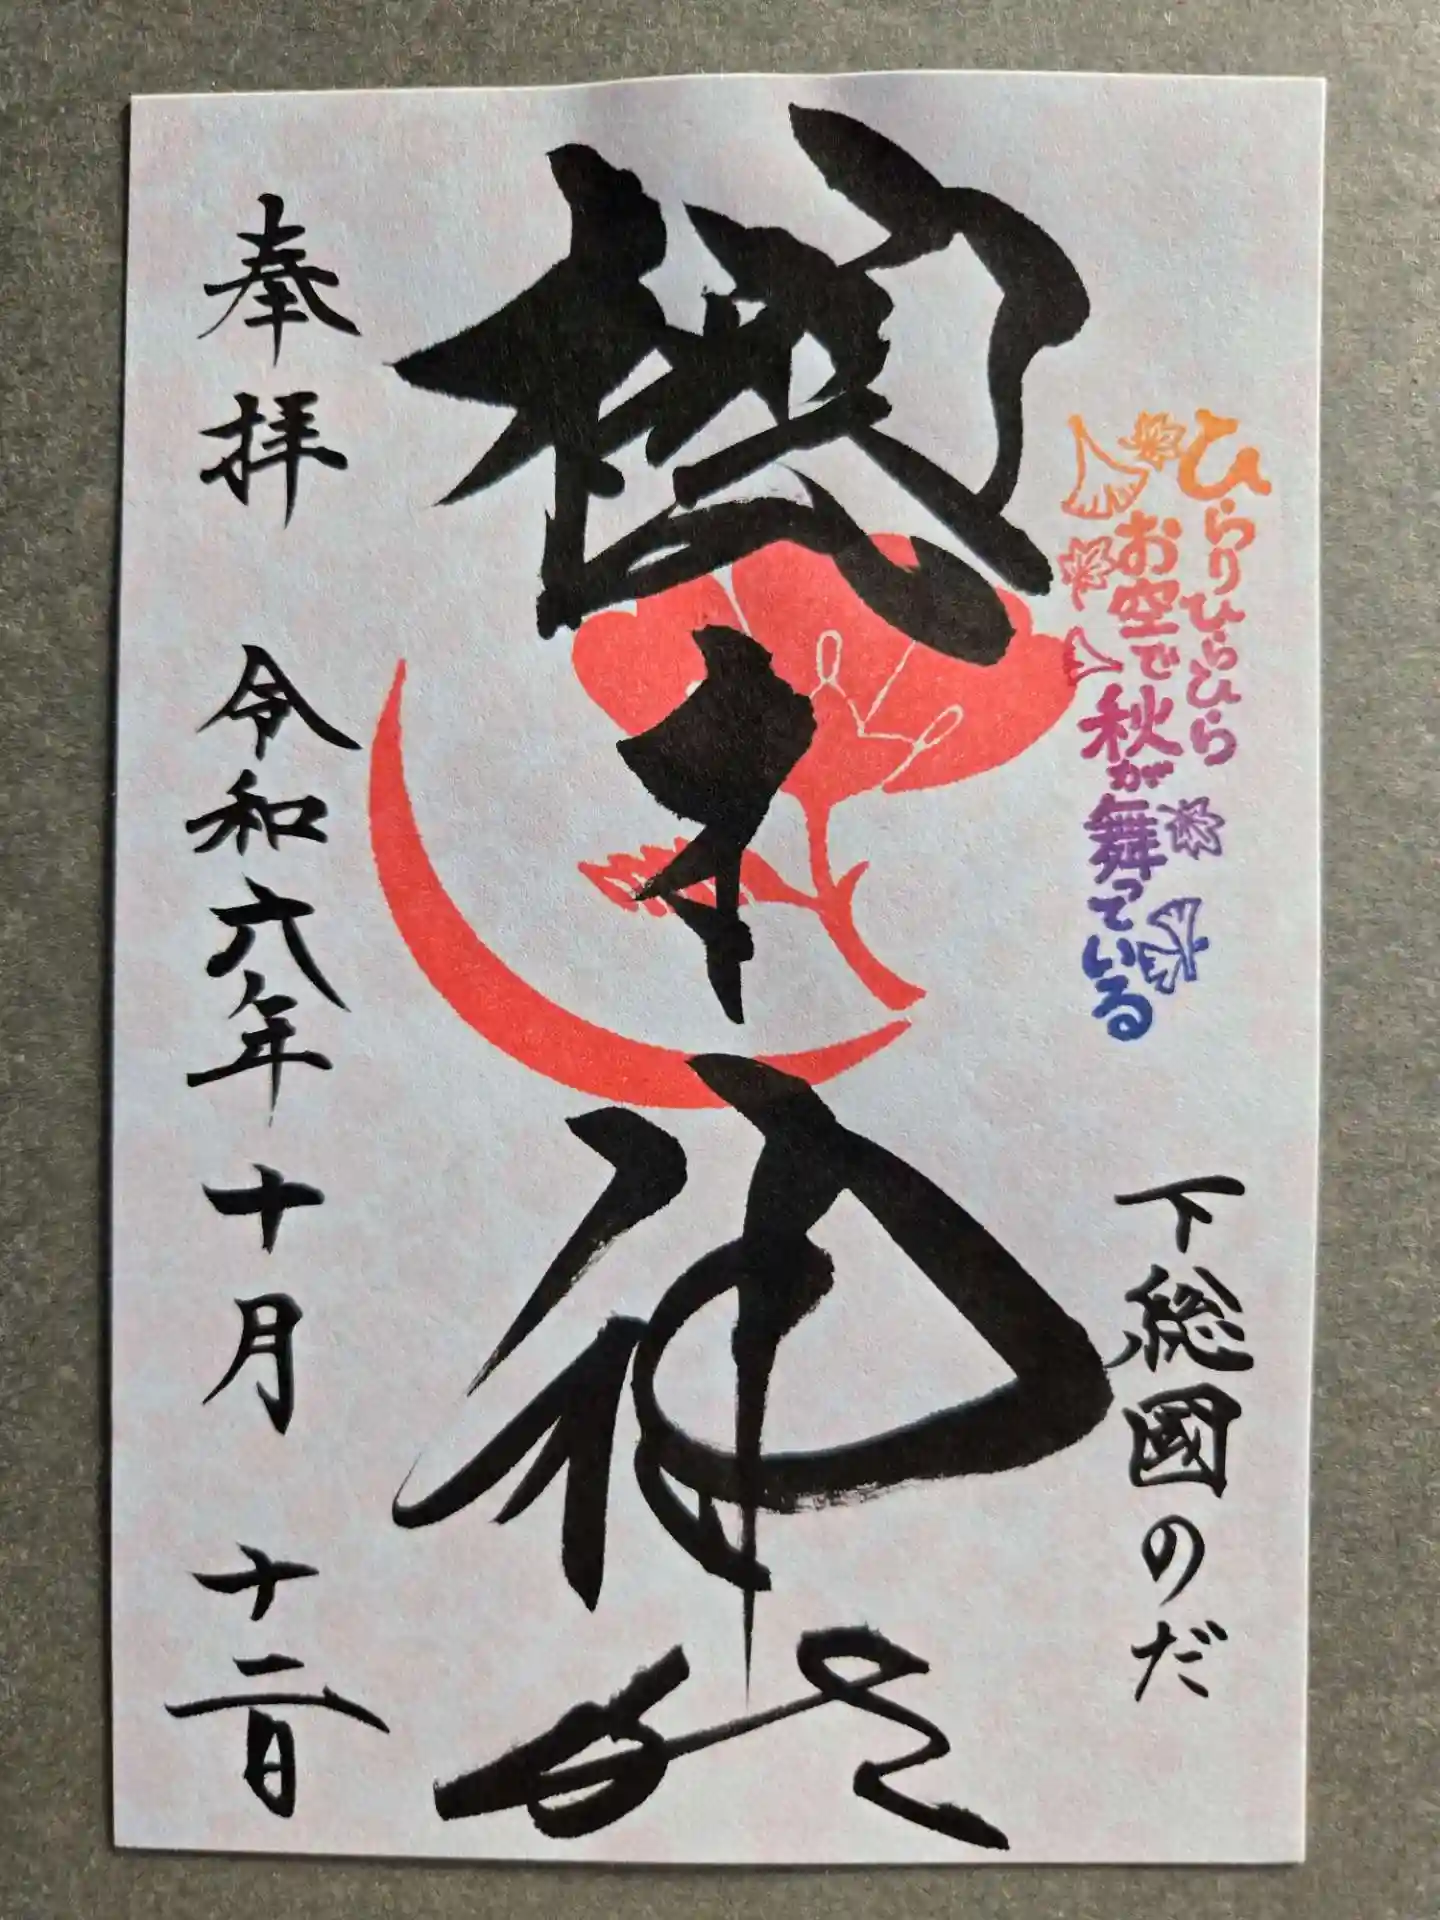 下総國のだ
ひらりひらひら
お空で秋が舞っている
櫻木神社
奉拝
令和六年十月十二日